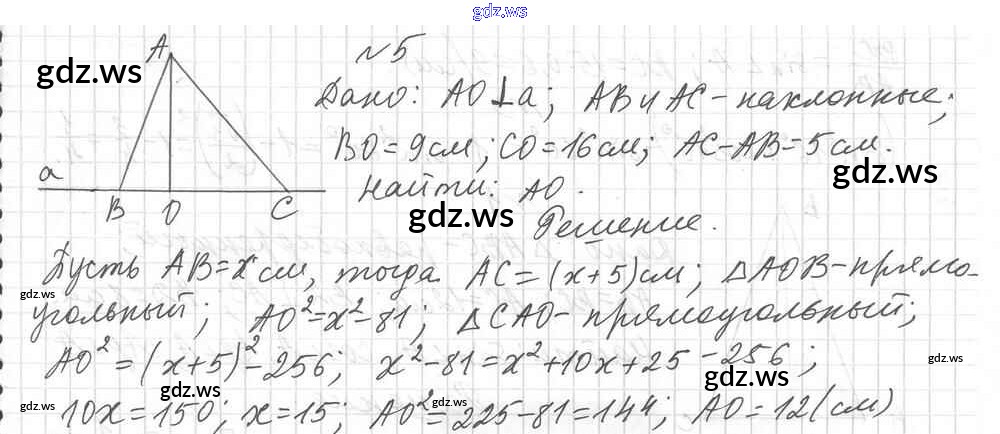 gdz.ws
№5
A
gdz.ws
Дано: AO⊥a; AB и AC - наклонные;
BO=9см; CO=16см; AC-AB=5см.
gdz.ws
a
Найти: AO.
B O C
gdz.ws
Решение.
Пусть AB=x см, тогда AC=(x+5)см; △AOB-прямо-
gdz.ws
угольный; AO²=x²-81; △CAO-прямоугольный;
AO²=(x+5)²-256; x²-81=x²+10x+25-256;
gdz.ws gdz.ws gdz.ws
gdz.ws gdz.ws
10x=150; x=15; AO²=225-81=144; AO=12(см)